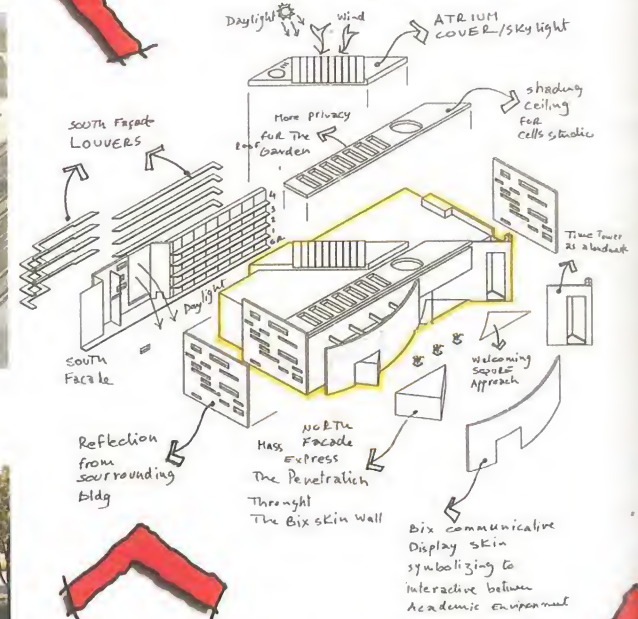 Daylight
wind
ATRIUM
COVER/SKylight
shading
Ceiling
FOR
Cells studio
More privacy
FOR The
ROOF
Garden
South Façade
LOUVERS
4
3
2
1
GR
Daylight
South
Facade
Time Tower
as a landmark
Welcoming
Square
Approach
Reflection
from
sourrounding
bldg
NORTH
Mass Facade
Express
The Penetration
Throught
The Bix skin wall
Bix communicative
Display skin
symbolizing to
interactive between
Academic Environment